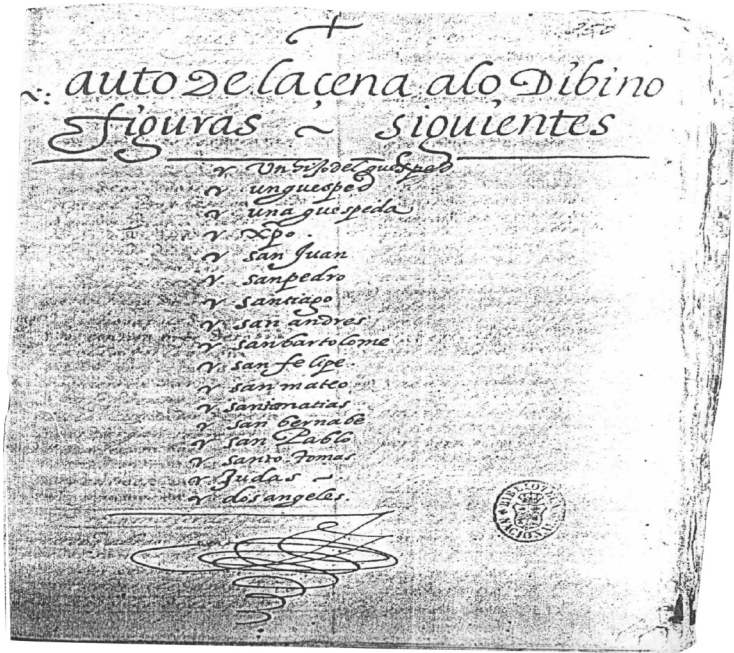 auto de la çena alo Dibino
figuras ~ siguientes
y Un hijo del guesped
y un guesped
y una guespeda
y xpo.
y san Juan
y san pedro
y santiago
y san andres
y san bartolome
y san felipe
y san mateo
y santo matias
y san bernabe
y san Pablo
y santo Tomas
y Judas ~
y dos angeles.
BIBLIOTECA NACIONAL